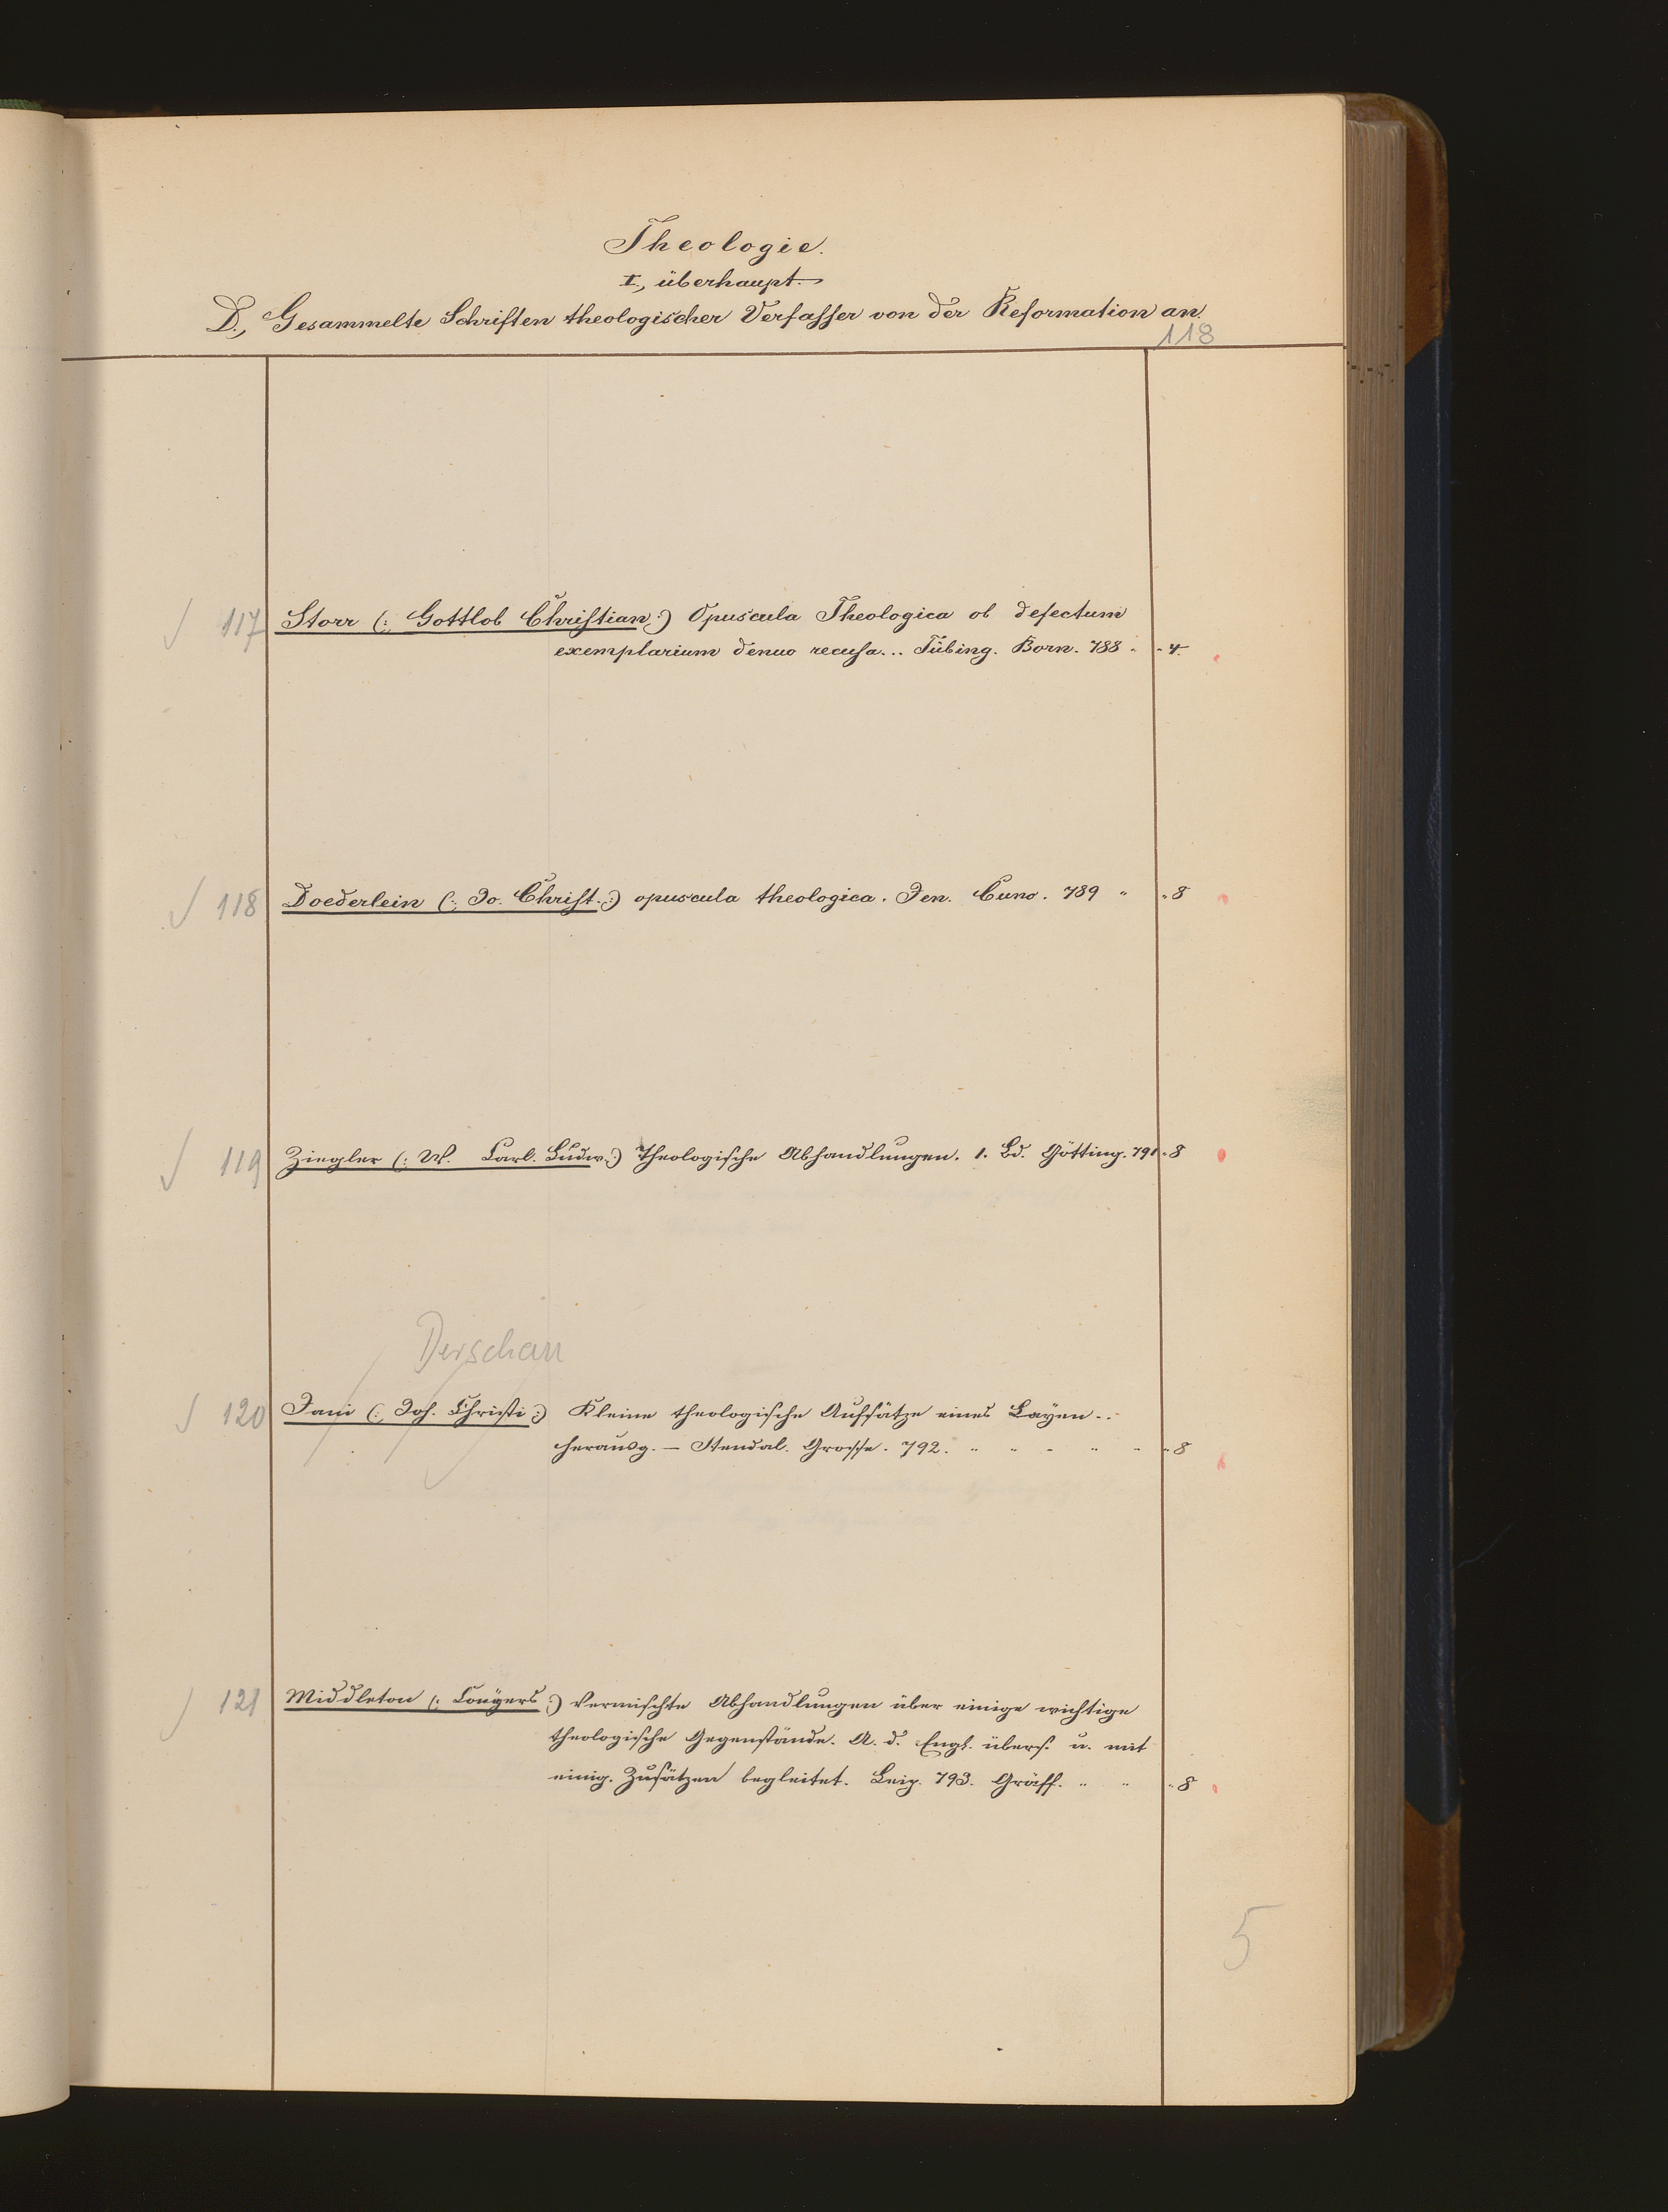 Theologie.
I., überhaupt.
D., Gesammelte Schriften theologischer Verfasser von der Reformation an.
118
117 Storr (: Gottlob Christian :) Opuscula Theologica ob defectum
exemplarium denuo recusa... Tübing. Born. 788 " " 4.
118 Doederlein (: Jo. Christ. :) opuscula theologica. Jen. Cuno. 789 " " 8
119 Ziegler (: W. Carl. Ludw. :) Theologische Abhandlungen. 1. Bd. Götting. 791 " 8
Derschau
120 Jani (: Joh. Christi :) Kleine theologische Aufsätze eines Layen..
herausg. — Stendal. Grosse. 792. " " " " " " 8
121 Middleton (: Conÿers :) Vermischte Abhandlungen über einige wichtige
theologische Gegenstände. A. d. Engl. übers. u. mit
einig. Zusätzen begleitet. Leip. 793. Gräff. " " " 8
5